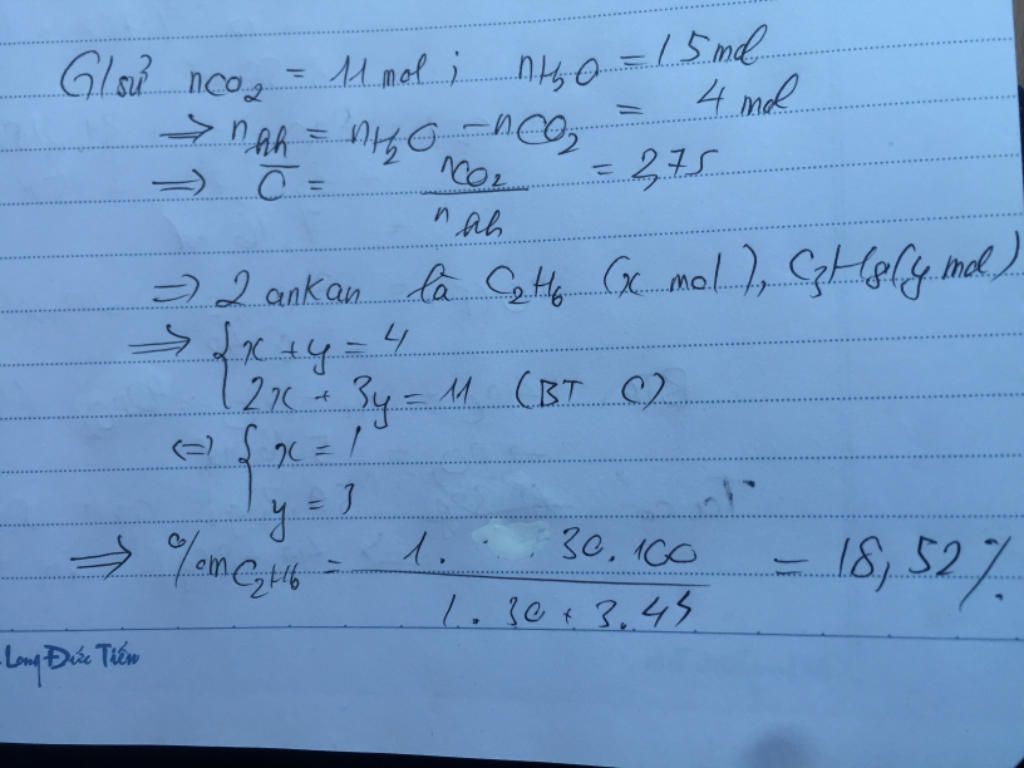 G/sử nCO2 = 11 mol ; nH2O = 15 mol
=> nhh = nH2O - nCO2 = 4 mol
=> C̅ = nCO2 / nhh = 2,75
=> 2 ankan là C2H6 (x mol), C3H8 (y mol)
=> { x + y = 4
2x + 3y = 11 (BT C)
<=> { x = 1
y = 3
=> %mC2H6 = 1. 30.100 / 1.30 + 3.44 = 18,52%
Long Đức Tiến